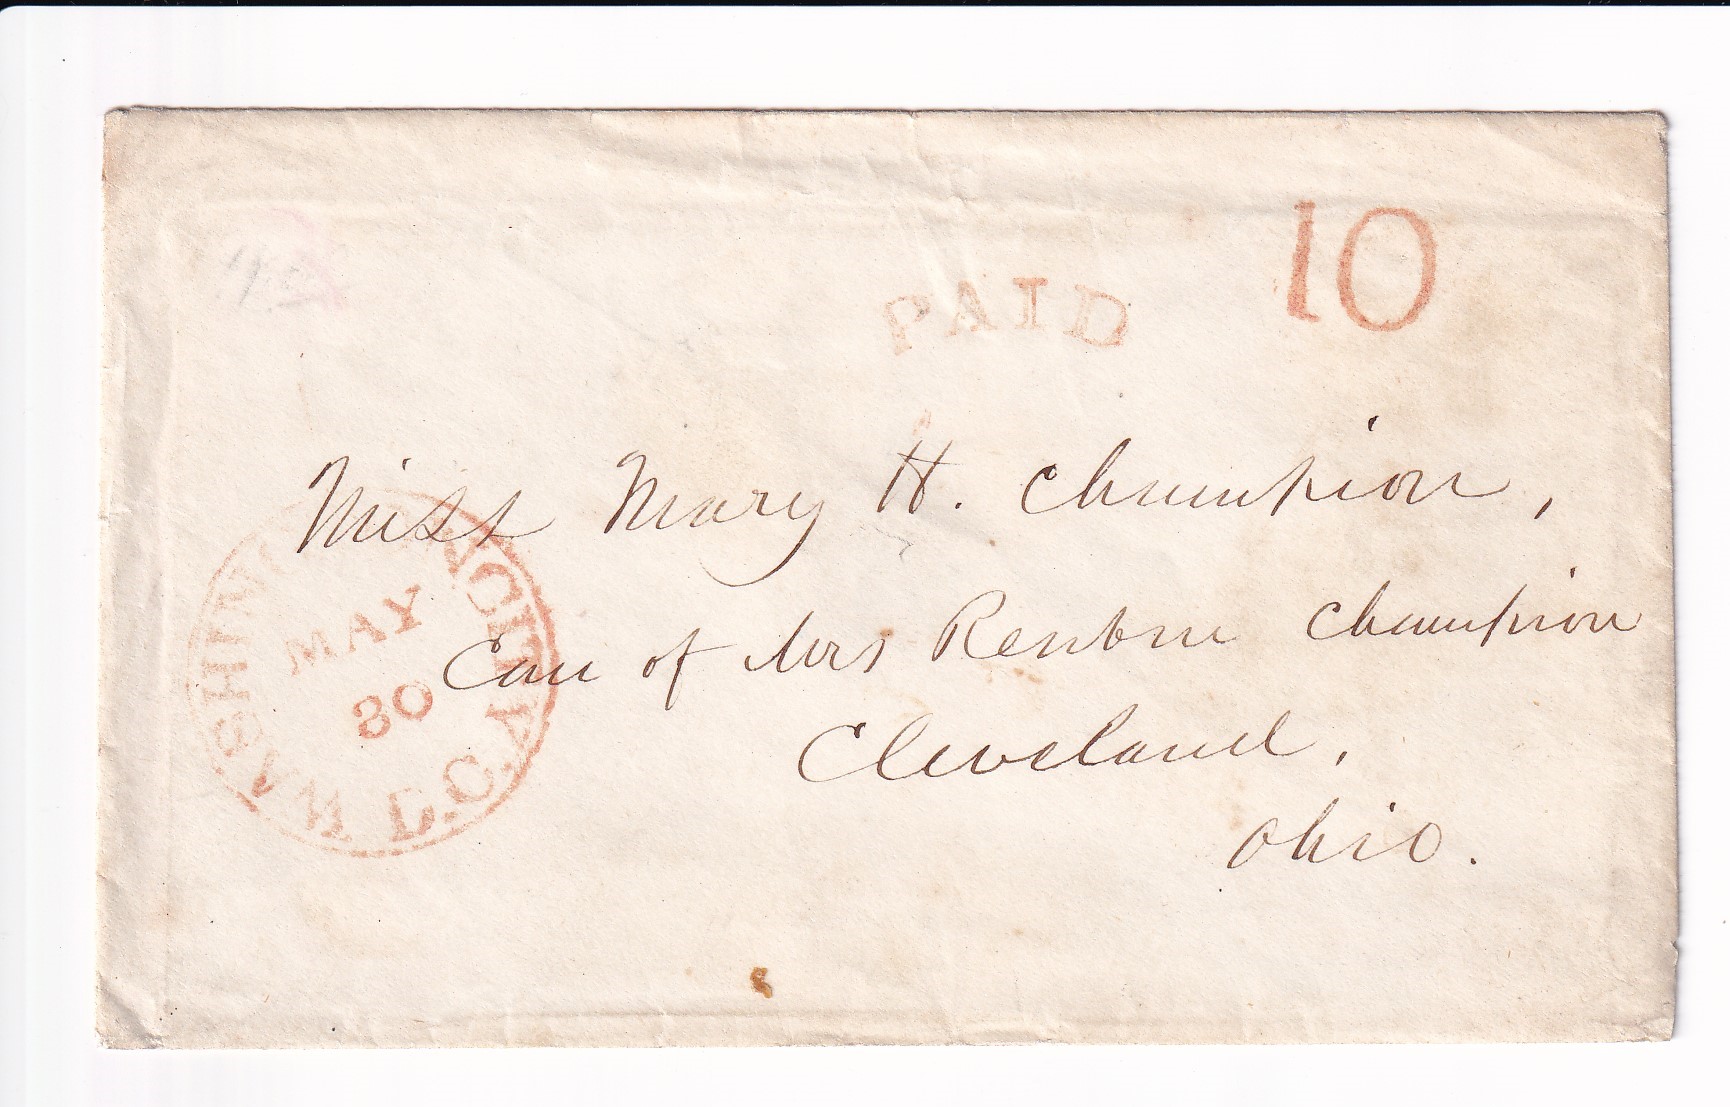 10
PAID
Miss Mary H. Champion,
Care of Mrs Reuben Champion
Cleveland,
Ohio.
WASHINGTON CITY D.C.
MAY
30